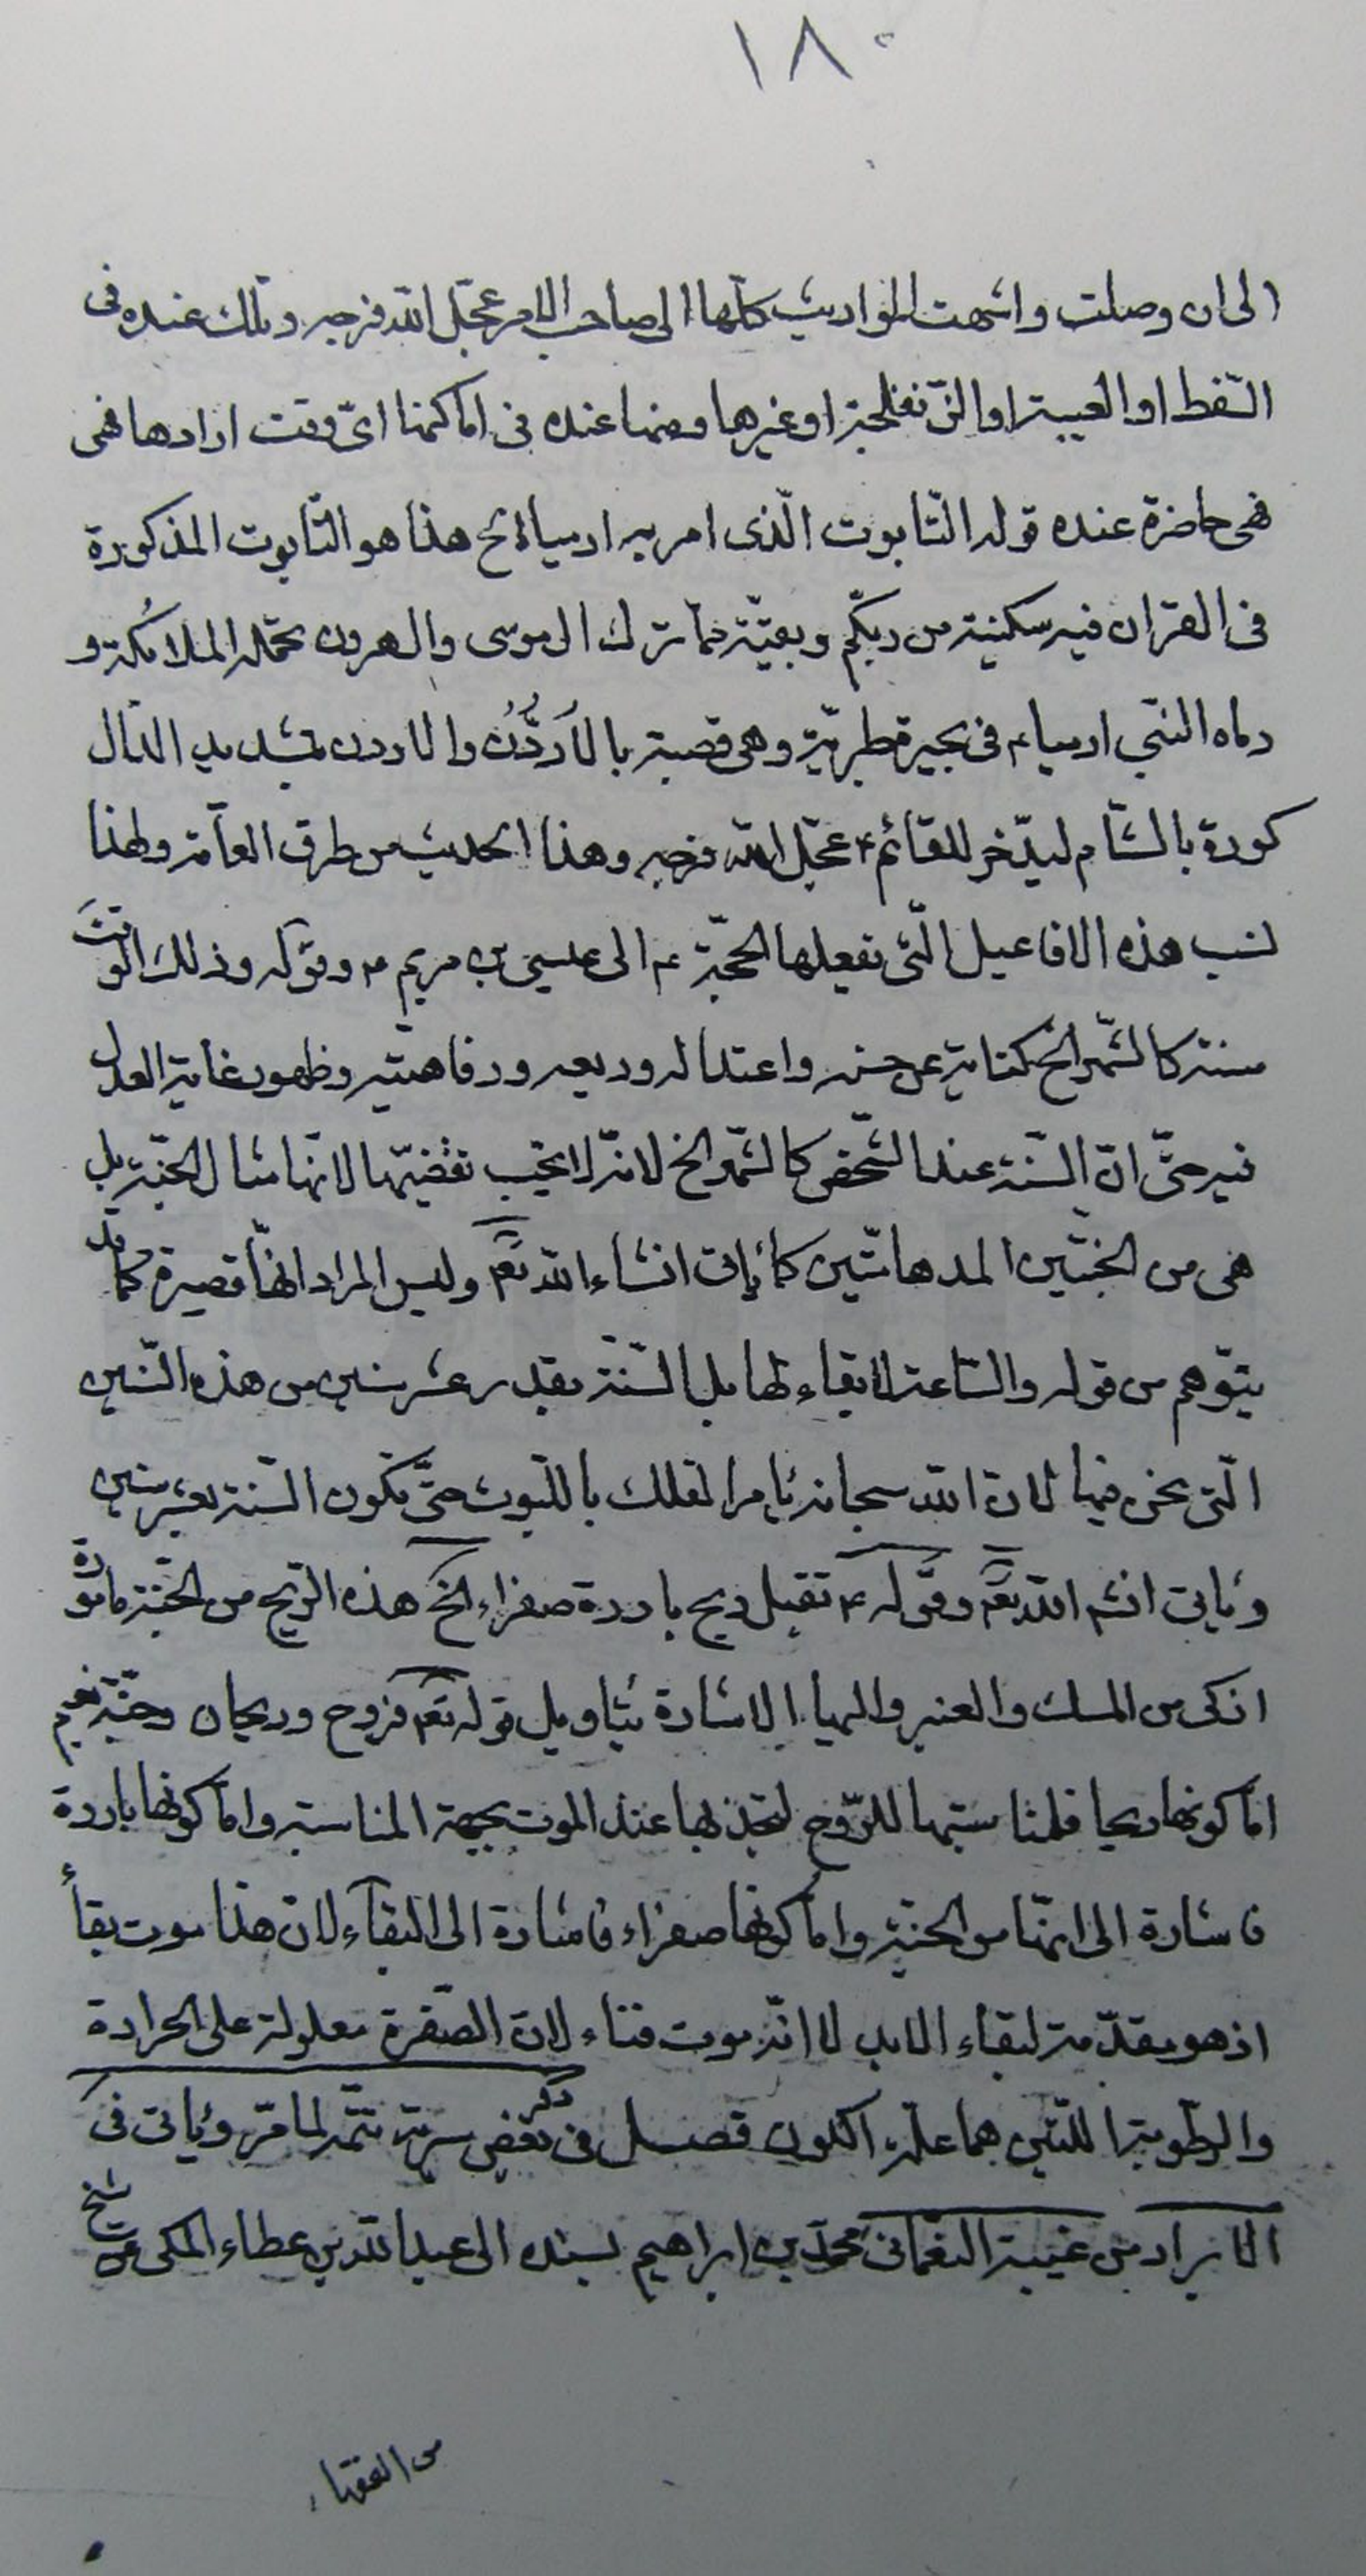 ١٨٠
الى ان وصلت وانتهت المواريث كلّها الى صاحب الامر عجّل الله فرجه وتلك عنده فى
السّفط او العيبة او الّتى نفلجة او غيرها ومنها عنده فى اماكنها اىّ وقت ارادها فهى
فهى حاضرة عنده قوله التّابوت الّذى امر به ارميا الخ هذا هو التّابوت المذكورة
فى القران فيه سكينة من ربّكم وبقيّة ممّا ترك ال موسى وال هرون تحمله الملائكة و
رماه النّبى ارميا ۴ فى بحيرة طبريّة وهى قصبة بالأردُّنّ والاردن بتشديد الدّال
كورة بالشّام ليدّخر للقائم ۴ عجّل الله فرجه وهذا الحديث من طرق العآمّة ولهذا
نسب هذه الافاعيل الّتى تفعلها الحجّة ۴ الى عيسى بن مريم ۴ وقوله وذلك الوقت
سنته كالشّهر الخ كناية عن حسنه واعتداله وربيعه ورفاهتيه وظهور غاية العدل
فيه حتّى انّ السّنة عند الشّخص كالشّهر الخ لانّه لا يحبّ تقضيّها لانّها مثال الجنّة بل
هى من الجنّتين المدهامّتين كما يأتى انشاء الله تعم وليس المراد انّها قصيرة كما قد
يتوّهم من قوله والسّاعة لا بقاء لها بل السّنة بقدر عشر سنين من هذه السّنين
الّتى نحن فيها لانّ الله سبحانه يأمر الفلك باللّبوث حتّى تكون السّنة بعشر سنين
ويأتى انشـ الله تعم وقوله ۴ تقبل ريح باردة صفراء الخ هذه الرّيح من الجنّة مامورة
اذكى من المسك والعنبر واليها الاشارة بتأويل قوله تعم فروح وريحان وجنّة نعيم
امّا كونها ريحا فلمناسبتها للرّوح لتجذبها عند الموت بجهة المناسبة وامّا كونها باردة
فاشارة الى انّها من الجنّة وامّا كونها صفراء فاشارة الى البقآء لانّ هذا موت بقاء
اذ هو مقدّمة لبقاء الابد لا انّه موت فناء لانّ الصّفرة معلولة على الحرارة
والرّطوبة اللّتين هما علّة الكون فصل فى ذكر بعض سيرته تتمّة لما مرّ ويأتى فى
الايراد من غيبة النّعمانى محمّد بن ابراهيم بسنده الى عبد الله بن عطاء المكى عن شيخ
من الفقهاء